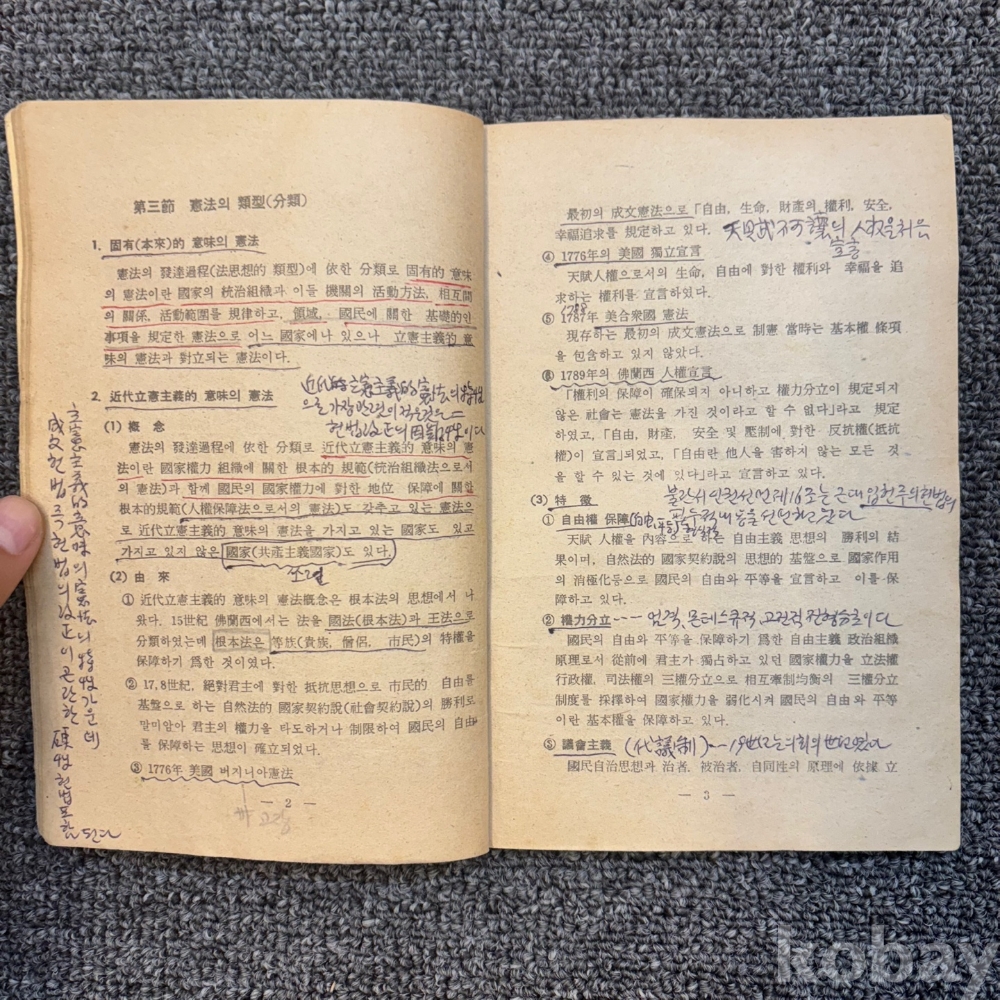 第三節 憲法의 類型(分類)
1. 固有(本來)的 意味의 憲法
憲法의 發達過程(法思想的 類型)에 依한 分類로 固有的 意味
의 憲法이란 國家의 統治組織과 이들 機關의 活動方法, 相互間
의 關係, 活動範圍를 規律하고, 領域, 國民에 關한 基礎的인
事項을 規定한 憲法으로 어느 國家에나 있으나 立憲主義的 意
味의 憲法과 對立되는 憲法이다.
2. 近代立憲主義的 意味의 憲法
(1) 槪念
憲法의 發達過程에 依한 分類로 近代立憲主義的 意味의 憲
法이란 國家權力 組織에 關한 根本的 規範(統治組織法으로서
의 憲法)과 함께 國民의 國家權力에 對한 地位 保障에 關한
根本的 規範(人權保障法으로서의 憲法)도 갖추고 있는 憲法으
로 近代立憲主義的 意味의 憲法을 가지고 있는 國家도 있고
가지고 있지 않은 國家(共產主義國家)도 있다.
(2) 由來
① 近代立憲主義的 意味의 憲法槪念은 根本法의 思想에서 나
왔다. 15世紀 佛蘭西에서는 法을 國法(根本法)과 王法으로
分類하였는데 根本法은 等族(貴族, 僧侶, 市民)의 特權을
保障하기 爲한 것이였다.
② 17,8世紀, 絕對君主에 對한 抵抗思想으로 市民的 自由를
基盤으로 하는 自然法的 國家契約說(社會契約說)의 勝利로
말미암아 君主의 權力을 타도하거나 制限하여 國民의 自由
를 保障하는 思想이 確立되었다.
③ 1776年 美國 버지니아憲法
— 2 —
立憲主義的 意味의 憲法의 特性가운데
成文헌법 즉 헌법의 改正이 곤란한 硬性헌법포함
된다
最初의 成文憲法으로「自由, 生命, 財產의 權利, 安全,
幸福追求를 規定하고 있다. 天賦不可讓의 人權을처음
宣言
④ 1776年의 美國 獨立宣言
天賦人權으로서의 生命, 自由에 對한 權利와 幸福을 追
求하는 權利를 宣言하였다.
1788
⑤ 1787年 美合衆國 憲法
現存하는 最初의 成文憲法으로 制憲 當時는 基本權 條項
을 包含하고 있지 않았다.
⑥ 1789年의 佛蘭西 人權宣言
「權利의 保障이 確保되지 아니하고 權力分立이 規定되지
않은 社會는 憲法을 가진 것이라고 할 수 없다」라고 規定
하였고, 「自由, 財產, 安全 및 壓制에 對한 反抗權(抵抗
權)이 宣言」되었고, 「自由란 他人을 害하지 않는 모든 것
을 할 수 있는 것에 있다」라고 宣言하고 있다.
(3) 特徵 불란서 인권선언 제16조는 근대 입헌주의헌법의
① 自由權 保障
天賦 人權을 內容으로 하는 自由主義 思想의 勝利의 結
果이며, 自然法的 國家契約說의 思想的 基盤으로 國家作用
의 消極化등으로 國民의 自由와 平等을 宣言하고 이를 保
障하고 있다.
② 權力分立 --- 엄격, 몬테스큐적 고전적 전형승분이다
國民의 自由와 平等을 保障하기 爲한 自由主義 政治組織
原理로서 從前에 君主가 獨占하고 있던 國家權力을 立法權
行政權, 司法權의 三權分立으로 相互牽制均衡의 三權分立
制度를 採擇하여 國家權力을 弱化시켜 國民의 自由와 平等
이란 基本權을 保障하고 있다.
③ 議會主義 (代議制) -- 19世紀는 의회의 世紀였다
國民自治思想과 治者, 被治者, 自同性의 原理에 依據 立
— 3 —
kobay